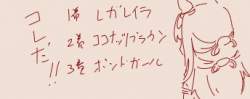 コレだ!!
1着 レガレイラ
2着 ココナッツブラウン
3着 ボンドガール